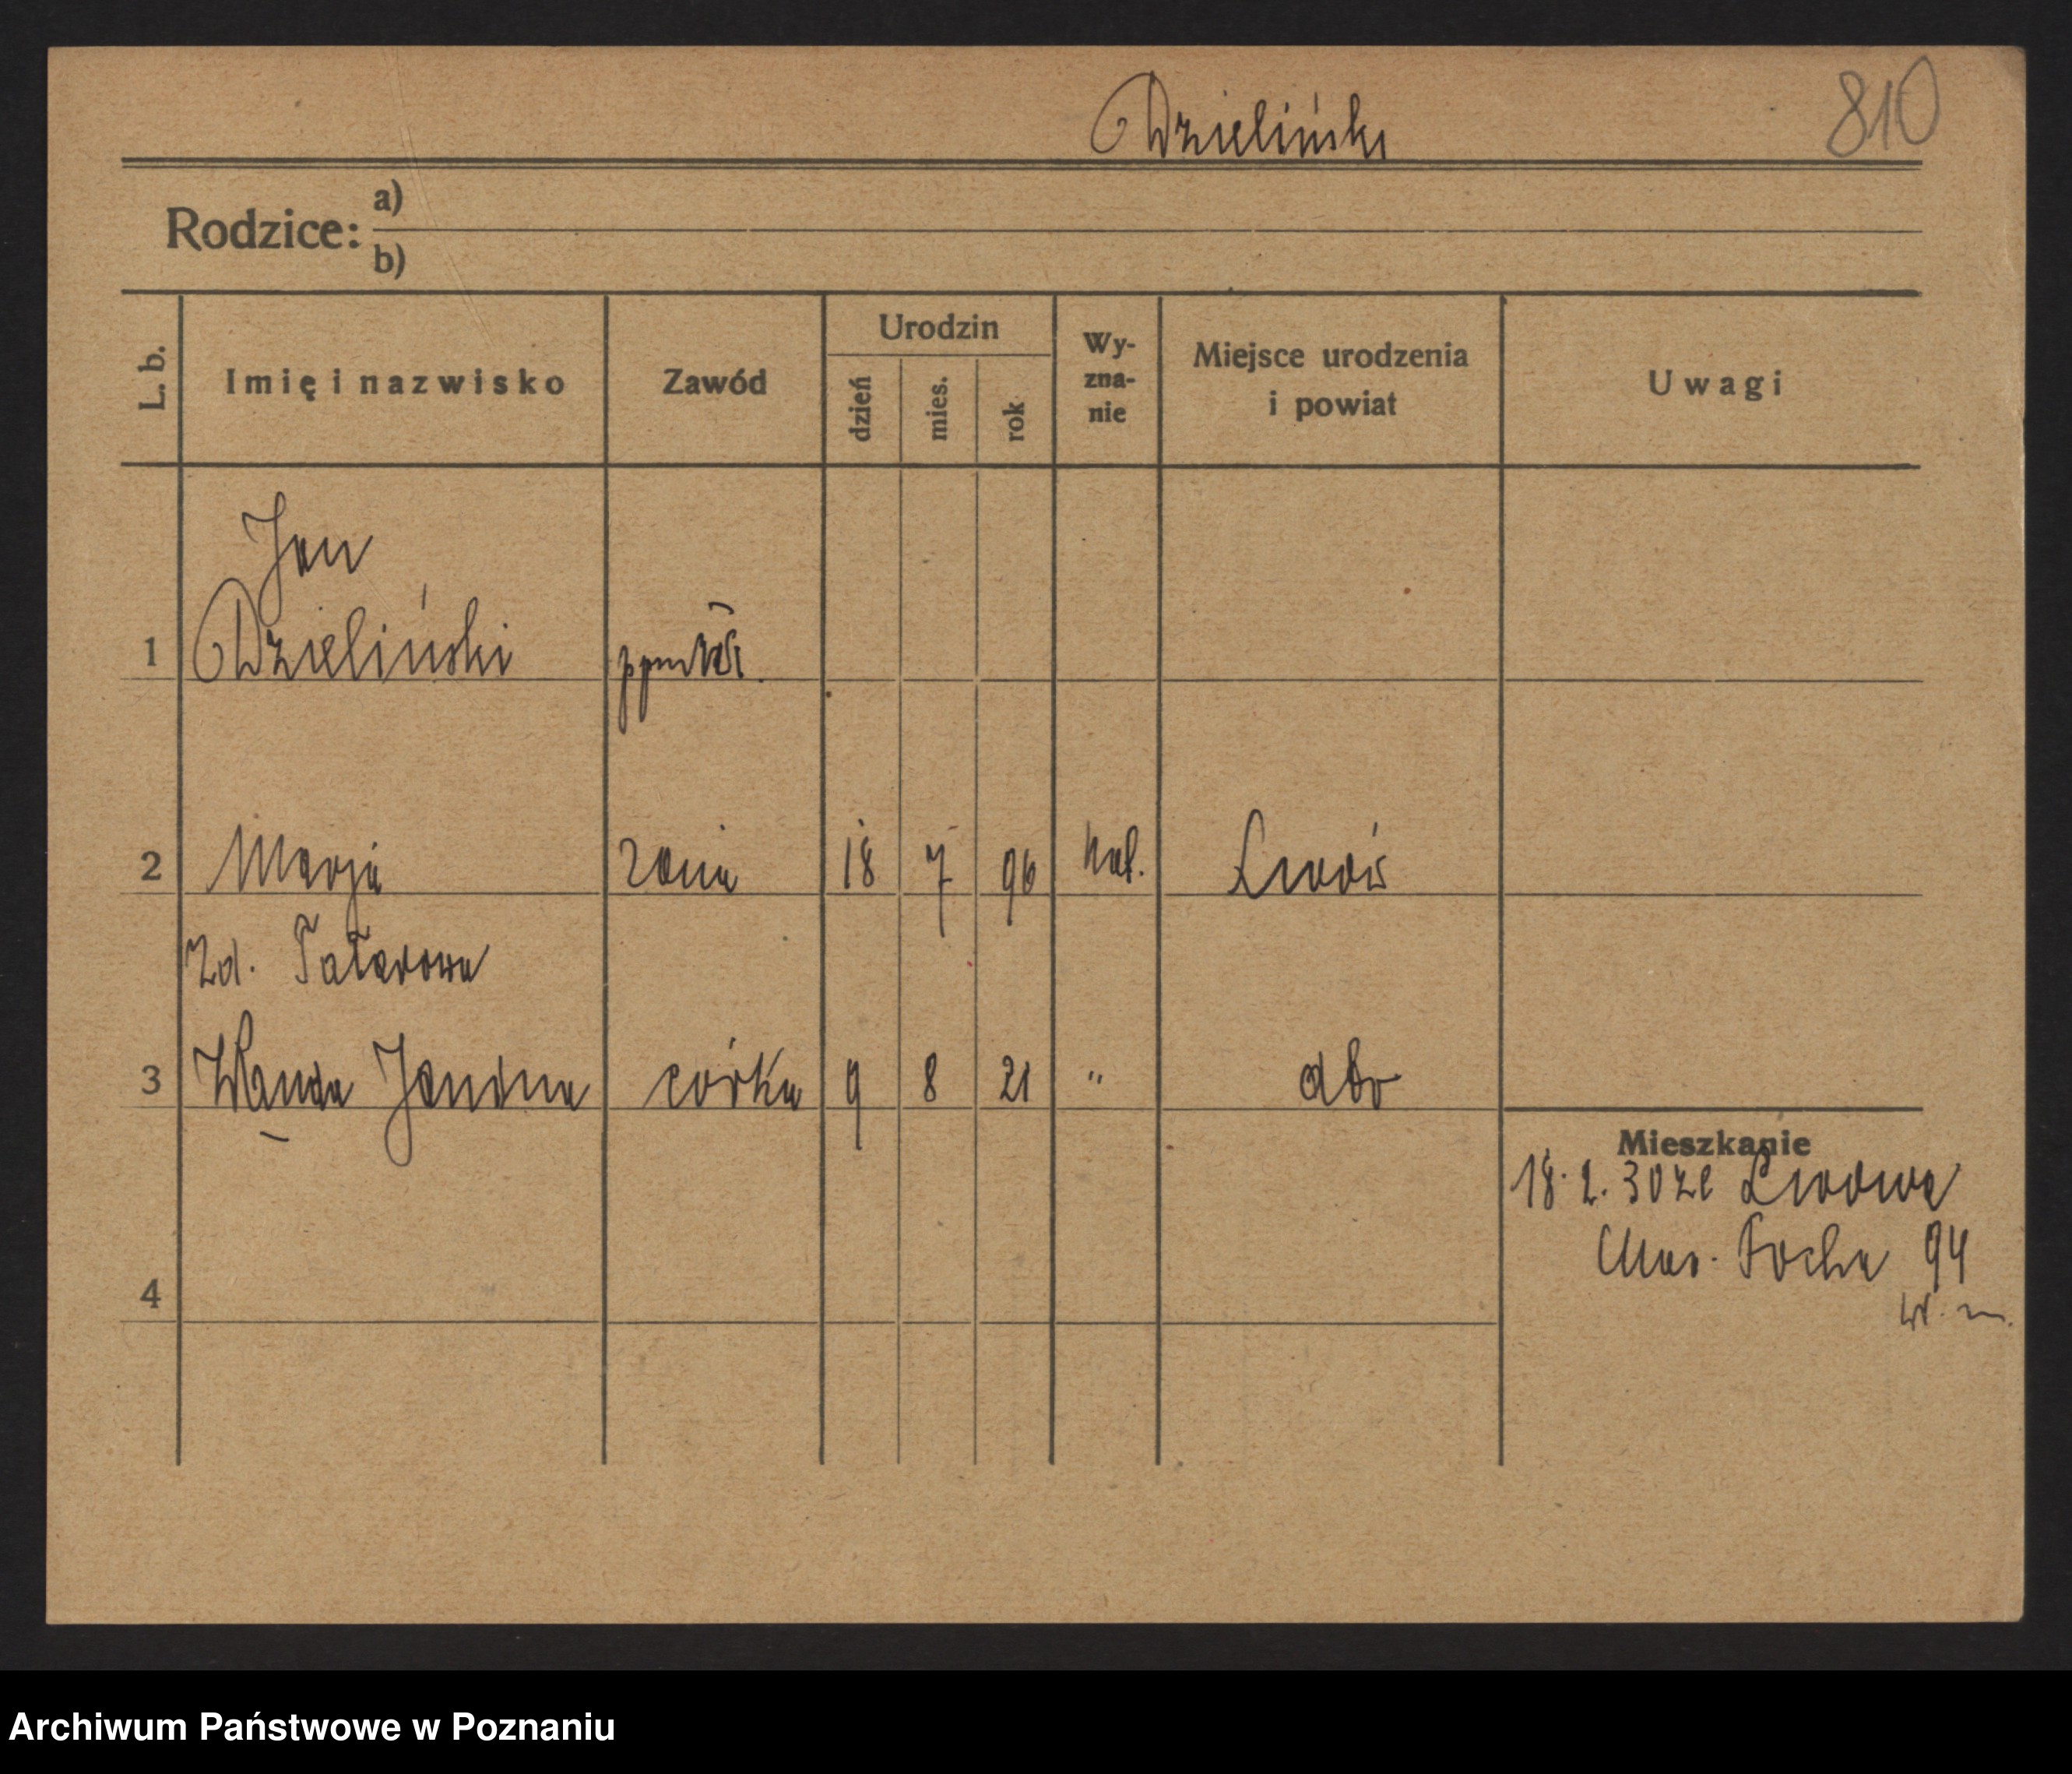 Dzieliński
810
Rodzice: a)
b)
L. b.
Imię i nazwisko
Zawód
Urodzin
dzień
mies.
rok
Wy-
zna-
nie
Miejsce urodzenia
i powiat
Uwagi
Jan
1 Dzieliński
2 Marja żona 18 7 96 kat. Lwów
zd. Tatarowa
3 Wanda Janina córka 9 8 21 " dto
Mieszkanie
18. 2. 30 ze Lwowa
Mar. Focha 94
4
Archiwum Państwowe w Poznaniu